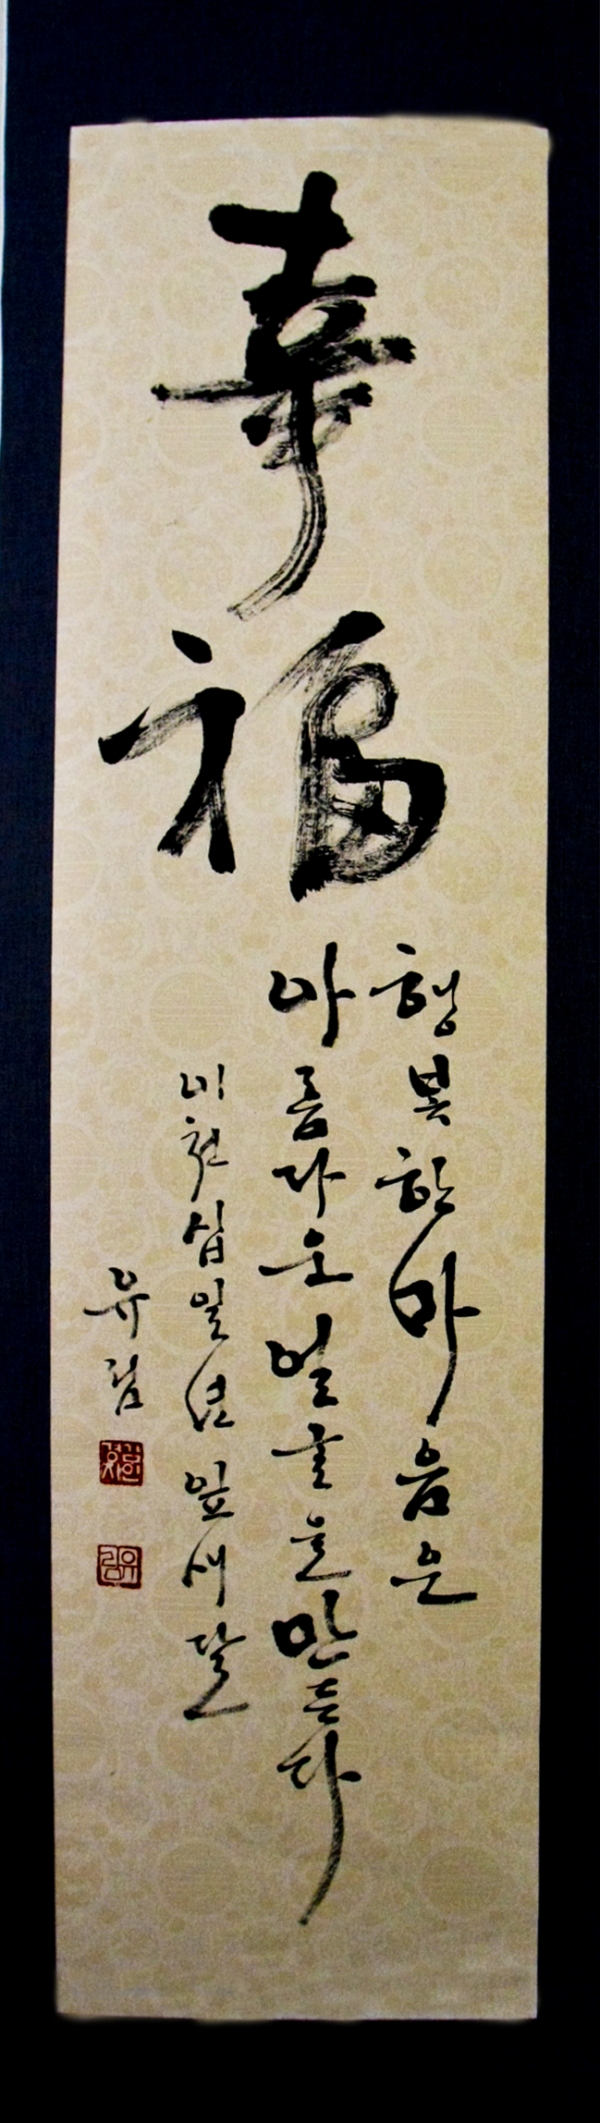 幸福
행복한마음은
아름다운얼굴을만든다
이천십일년잎새달
유림